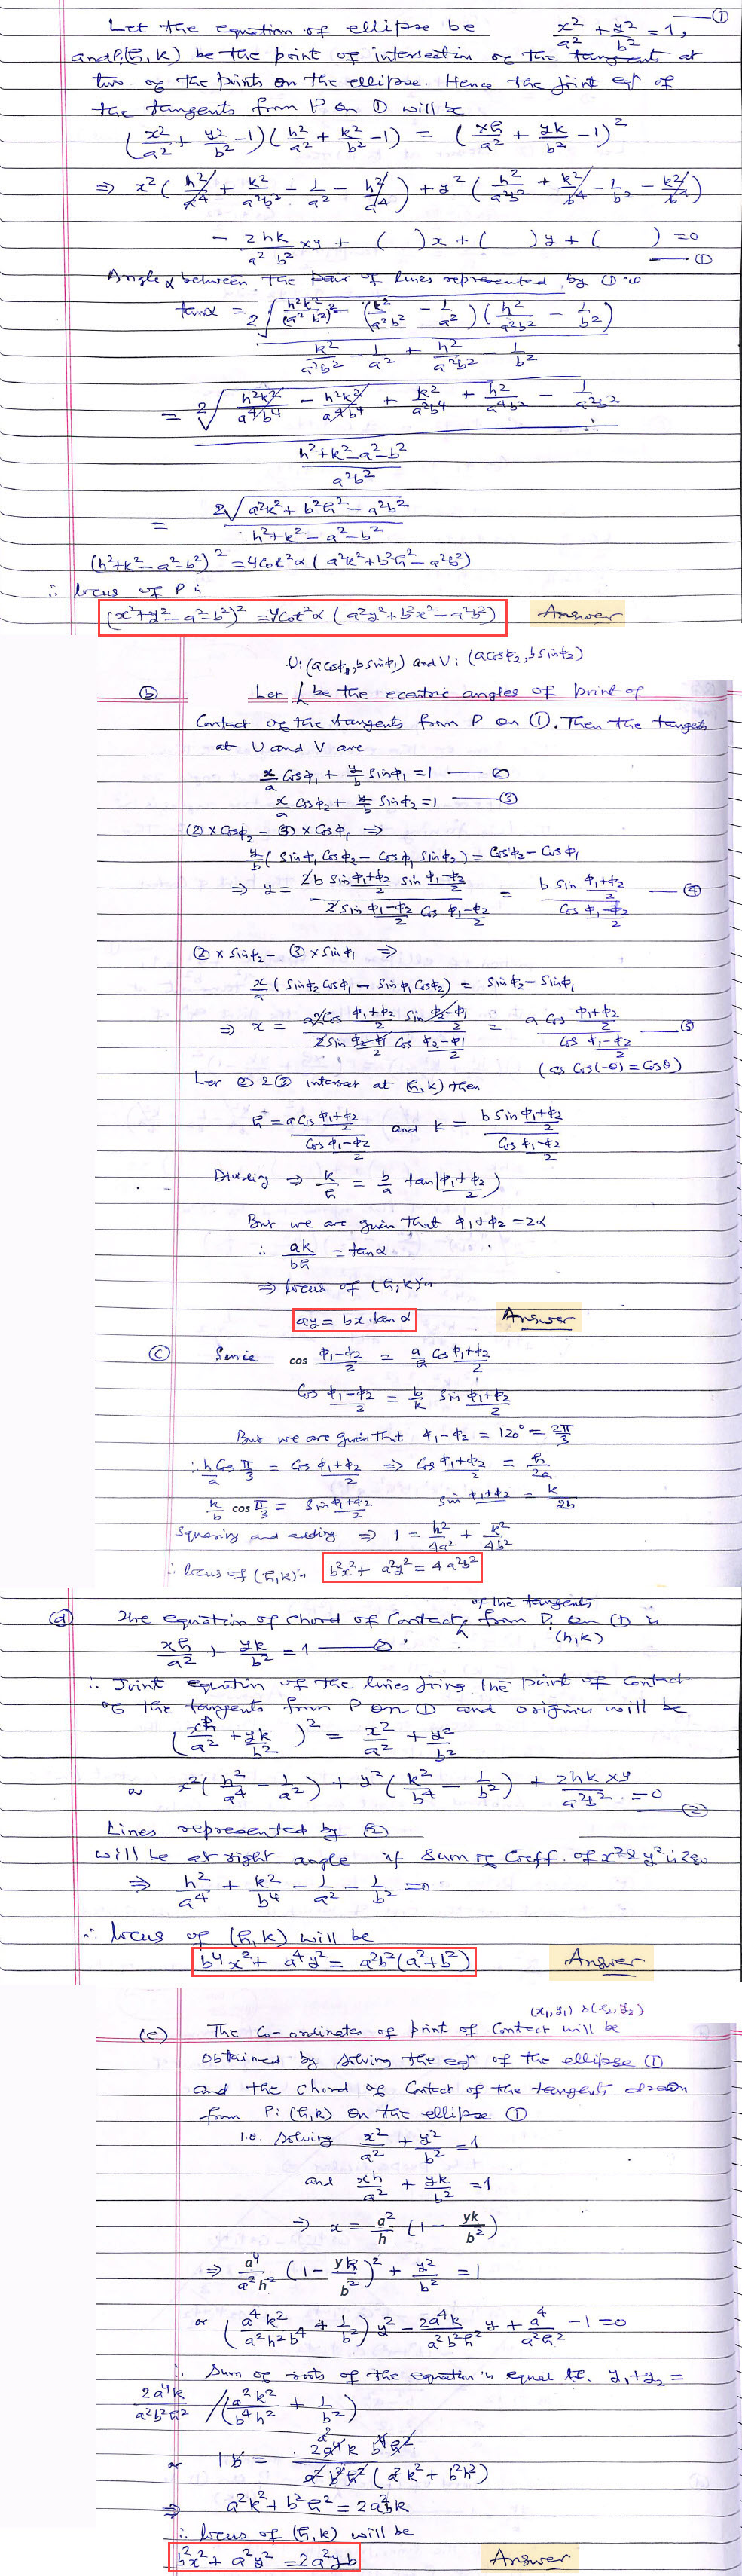 Let the equation of ellipse be x²/a² + y²/b² = 1, —①
and P:(h, k) be the point of intersection of the tangents at
two of the points on the ellipse. Hence the joint eqⁿ of
the tangents from P on ① will be
(x²/a² + y²/b² - 1)(h²/a² + k²/b² - 1) = (xh/a² + yk/b² - 1)²
⇒ x²(h²/a⁴ + k²/a²b² - 1/a² - h²/a⁴) + y²(h²/a²b² + k²/b⁴ - 1/b² - k²/b⁴)
- 2hk/a²b² xy + ( )x + ( )y + ( ) = 0 —①
Angle α between the pair of lines represented by ① is
tanα = 2√(h²k²/(a²b²)² - (k²/a²b² - 1/a²)(h²/a²b² - 1/b²)) / (k²/a²b² - 1/a² + h²/a²b² - 1/b²)
= 2√(h²k²/a⁴b⁴ - h²k²/a⁴b⁴ + k²/a²b⁴ + h²/a⁴b² - 1/a²b²) / ((h²+k²-a²-b²)/a²b²)
= 2√(a²k² + b²h² - a²b²) / (h²+k²-a²-b²)
(h²+k²-a²-b²)² = 4cot²α (a²k²+b²h²-a²b²)
∴ locus of P is
(x²+y²-a²-b²)² = 4cot²α (a²y²+b²x²-a²b²) Answer
U:(acosϕ₁, bsinϕ₁) and V:(acosϕ₂, bsinϕ₂)
(b) Let be the eccentric angles of point of
Contact of the tangents from P on ①. Then the tangets
at U and V are
x/a cosϕ₁ + y/b sinϕ₁ = 1 —②
x/a cosϕ₂ + y/b sinϕ₂ = 1 —③
② x cosϕ₂ - ③ x cosϕ₁ ⇒
y/b (sinϕ₁ cosϕ₂ - cosϕ₁ sinϕ₂) = cosϕ₂ - cosϕ₁
⇒ y = 2b sin (ϕ₁+ϕ₂)/2 sin (ϕ₁-ϕ₂)/2 / 2 sin (ϕ₁-ϕ₂)/2 cos (ϕ₁-ϕ₂)/2 = b sin (ϕ₁+ϕ₂)/2 / cos (ϕ₁-ϕ₂)/2 —④
② x sinϕ₂ - ③ x sinϕ₁ ⇒
x/a (sinϕ₂ cosϕ₁ - sinϕ₁ cosϕ₂) = sinϕ₂ - sinϕ₁
⇒ x = a2cos (ϕ₁+ϕ₂)/2 sin (ϕ₂-ϕ₁)/2 / 2 sin (ϕ₂-ϕ₁)/2 cos (ϕ₂-ϕ₁)/2 = a cos (ϕ₁+ϕ₂)/2 / cos (ϕ₁-ϕ₂)/2 —⑤
(as cos(-θ) = cosθ)
Let ② & ③ intersect at (h, k) then
h = a cos (ϕ₁+ϕ₂)/2 / cos (ϕ₁-ϕ₂)/2 and k = b sin (ϕ₁+ϕ₂)/2 / cos (ϕ₁-ϕ₂)/2
Dividing ⇒ k/h = b/a tan((ϕ₁+ϕ₂)/2)
But we are given that ϕ₁+ϕ₂ = 2α
∴ ak/bh = tanα
⇒ locus of (h, k) is
ay = bx tan α Answer
(c) Since cos (ϕ₁-ϕ₂)/2 = a/h cos (ϕ₁+ϕ₂)/2
cos (ϕ₁-ϕ₂)/2 = b/k sin (ϕ₁+ϕ₂)/2
But we are given that ϕ₁-ϕ₂ = 120° = 2π/3
∴ h/a cos π/3 = cos (ϕ₁+ϕ₂)/2 ⇒ cos (ϕ₁+ϕ₂)/2 = h/2a
k/b cos π/3 = sin (ϕ₁+ϕ₂)/2 sin (ϕ₁+ϕ₂) = k/2b
Squaring and adding ⇒ 1 = h²/4a² + k²/4b²
∴ locus of (h, k) is b²x² + a²y² = 4a²b²
of the tangents
(d) The equation of chord of contact from P on ① is
(h, k)
xh/a² + yk/b² = 1 —②
∴ Joint equation of the lines joing the point of contact
of the tangents from P on ① and origin will be
(xh/a² + yk/b²)² = x²/a² + y²/b²
or x²(h²/a⁴ - 1/a²) + y²(k²/b⁴ - 1/b²) + 2hk xy/a²b² = 0 —②
Lines represented by ②
will be at right angle if sum of Coeff. of x² & y² is zero
⇒ h²/a⁴ + k²/b⁴ - 1/a² - 1/b² = 0
∴ locus of (h, k) will be
b⁴x² + a⁴y² = a²b²(a²+b²) Answer
(x₁, y₁) & (x₂, y₂)
(e) The Co-ordinates of point of contact will be
obtained by solving the eqⁿ of the ellipse ①
and the chord of contact of the tangents drawn
from P:(h, k) on the ellipse ①
i.e. solving x²/a² + y²/b² = 1
and xh/a² + yk/b² = 1
⇒ x = a²/h (1 - yk/b²)
⇒ a⁴/a²h² (1 - yk/b²)² + y²/b² = 1
or (a⁴k²/a²h²b⁴ + 1/b²)y² - 2a⁴k/a²b²h² y + a⁴/a²h² - 1 = 0
∴ Sum of roots of the equation is equal to. y₁+y₂ =
2a⁴k/a²b²h² / (a²k²/b⁴h² + 1/b²)
or 1b = 2a⁴k b⁴h² / a²b²h²(a²k² + b²h²)
⇒ a²k² + b²h² = 2a²bk
∴ locus of (h, k) will be
b²x² + a²y² = 2a²yb Answer